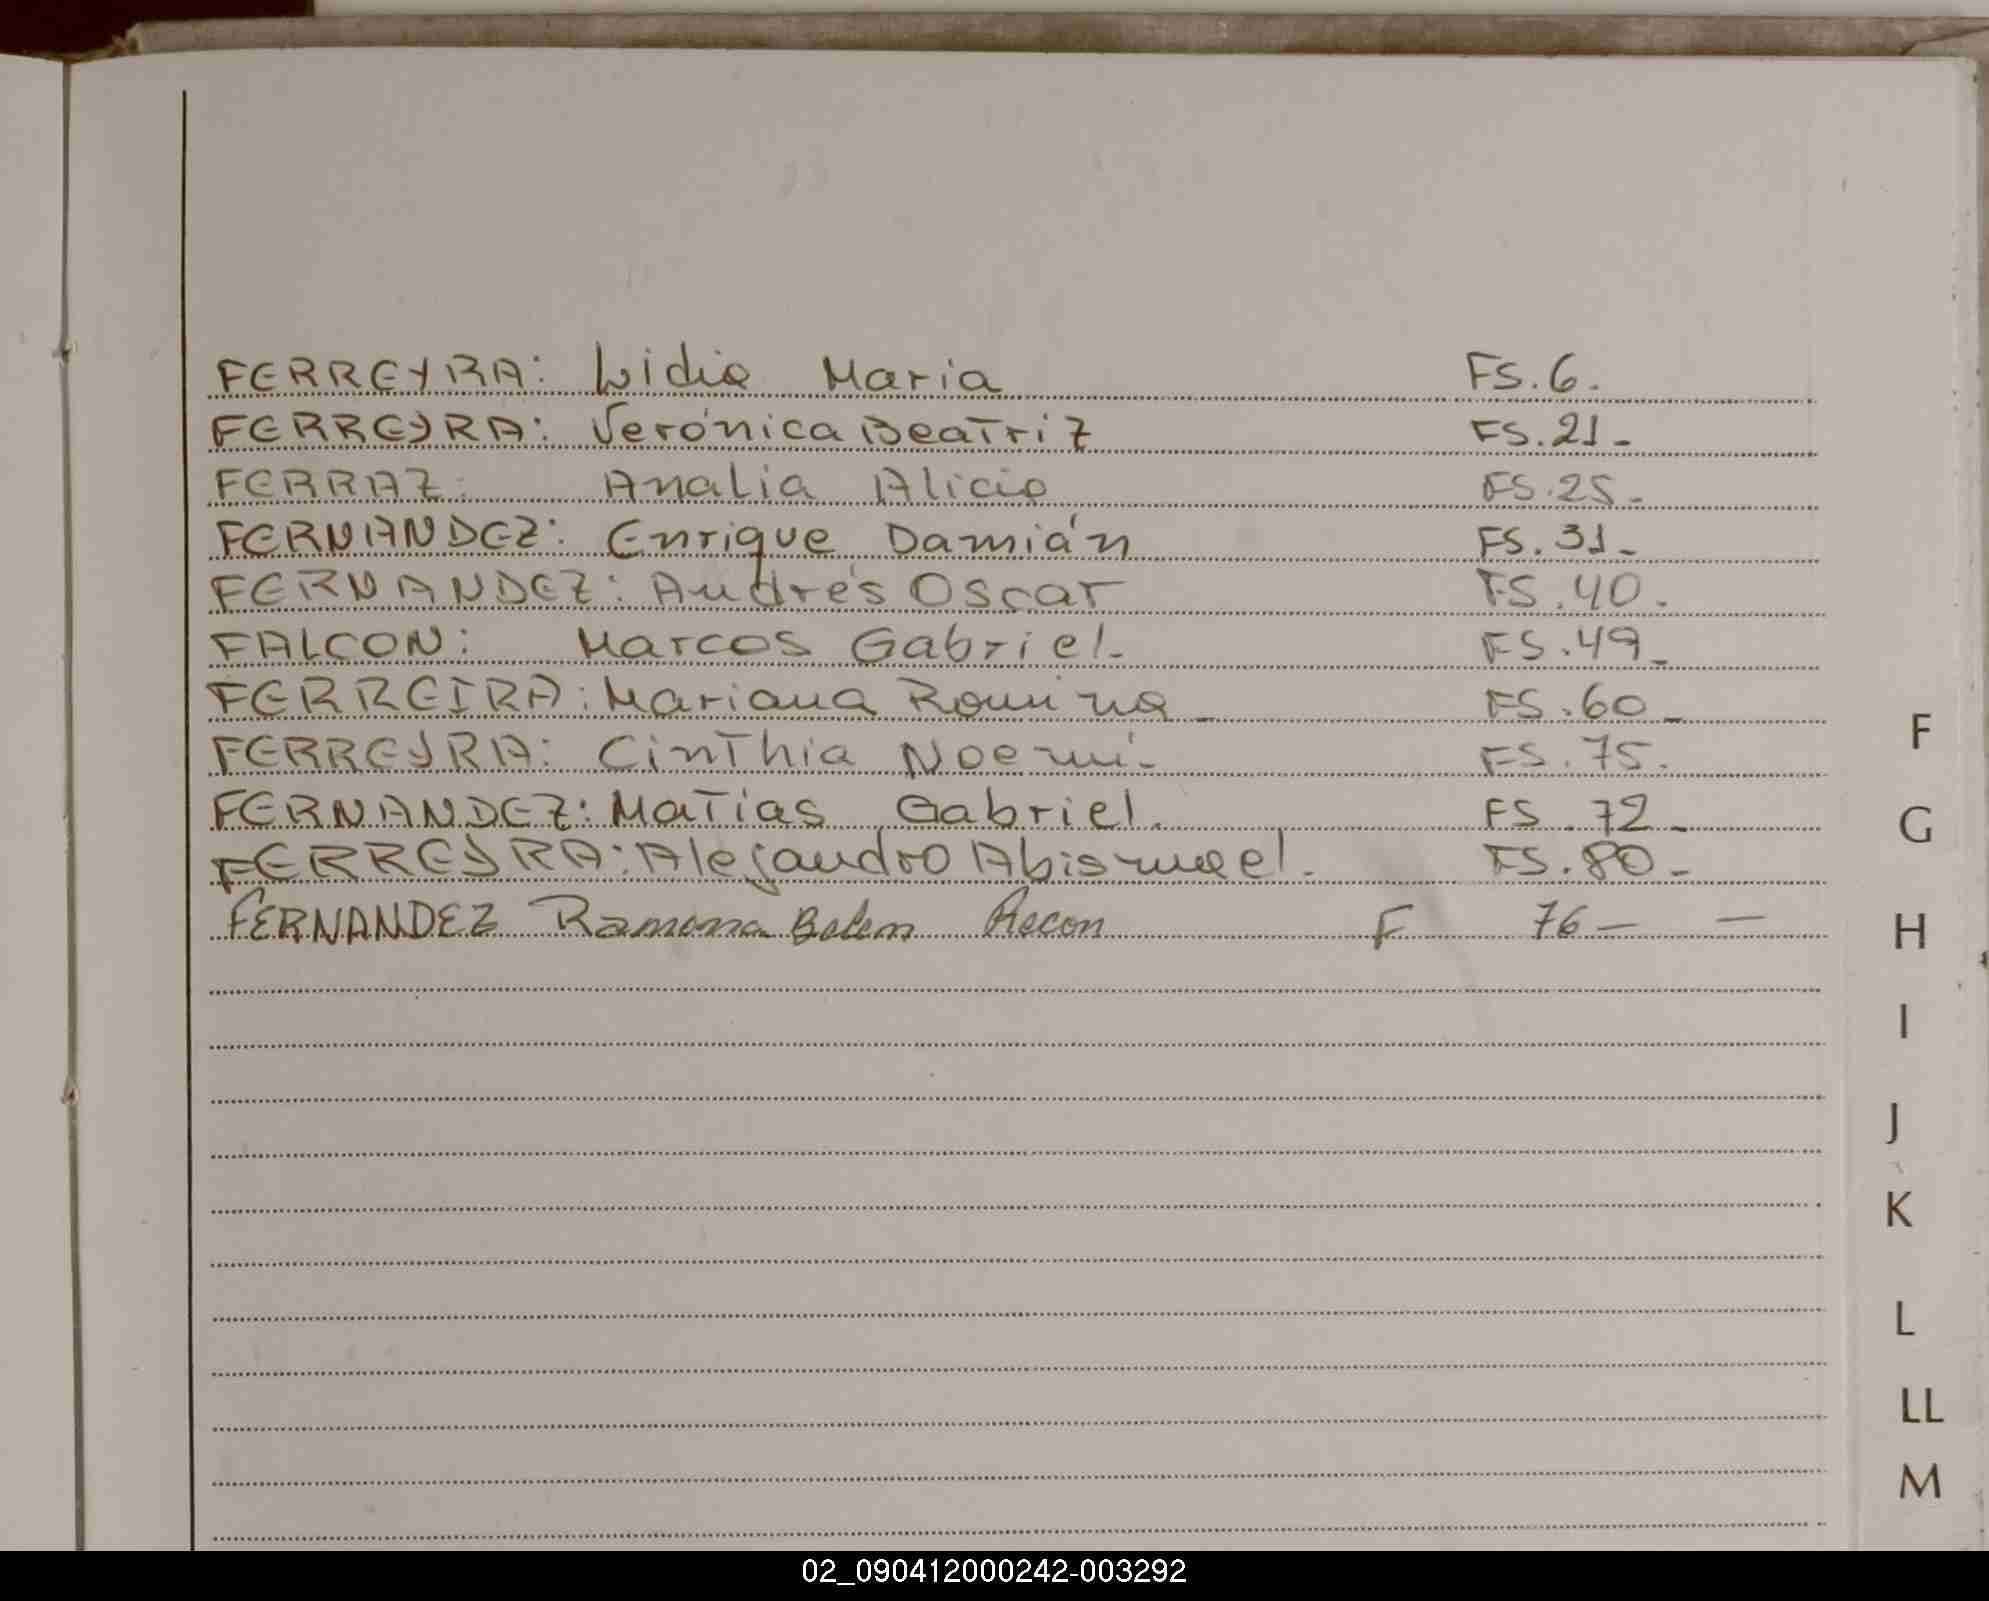 FERREYRA: Lidia Maria FS.6.
FERREYRA: Verónica Beatriz FS.21-
FERRAZ: Analia Alicia FS.25-
FERNANDEZ: Enrique Damián FS.31-
FERNANDEZ: Andrés Oscar FS.40.
FALCON: Marcos Gabriel- FS.49-
FERREIRA: Mariana Romina- FS.60-
FERREYRA: Cinthia Noemí- FS.75.
FERNANDEZ: Matias Gabriel. FS.72-
FERREYRA: Alejandro Abismael. FS.80-
FERNANDEZ Ramona Belem Recon F 76- -
F
G
H
I
J
K
L
LL
M
02_090412000242-003292